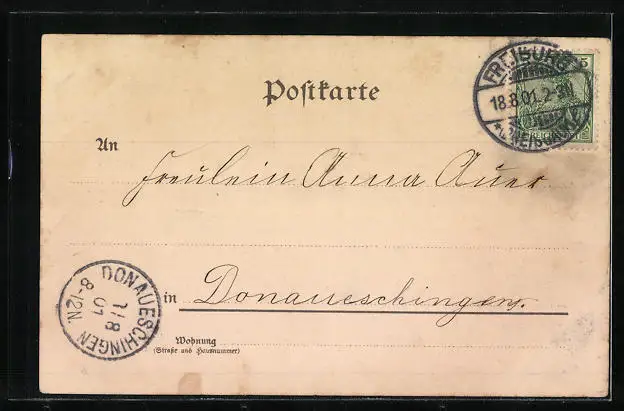 Postkarte
FREIBURG
18.8.01.2-3N
5
An
Fräulein Anna Auer
DONAUESCHINGEN
8-12N.
in Donaueschingen.
Wohnung
(Straße und Hausnummer)